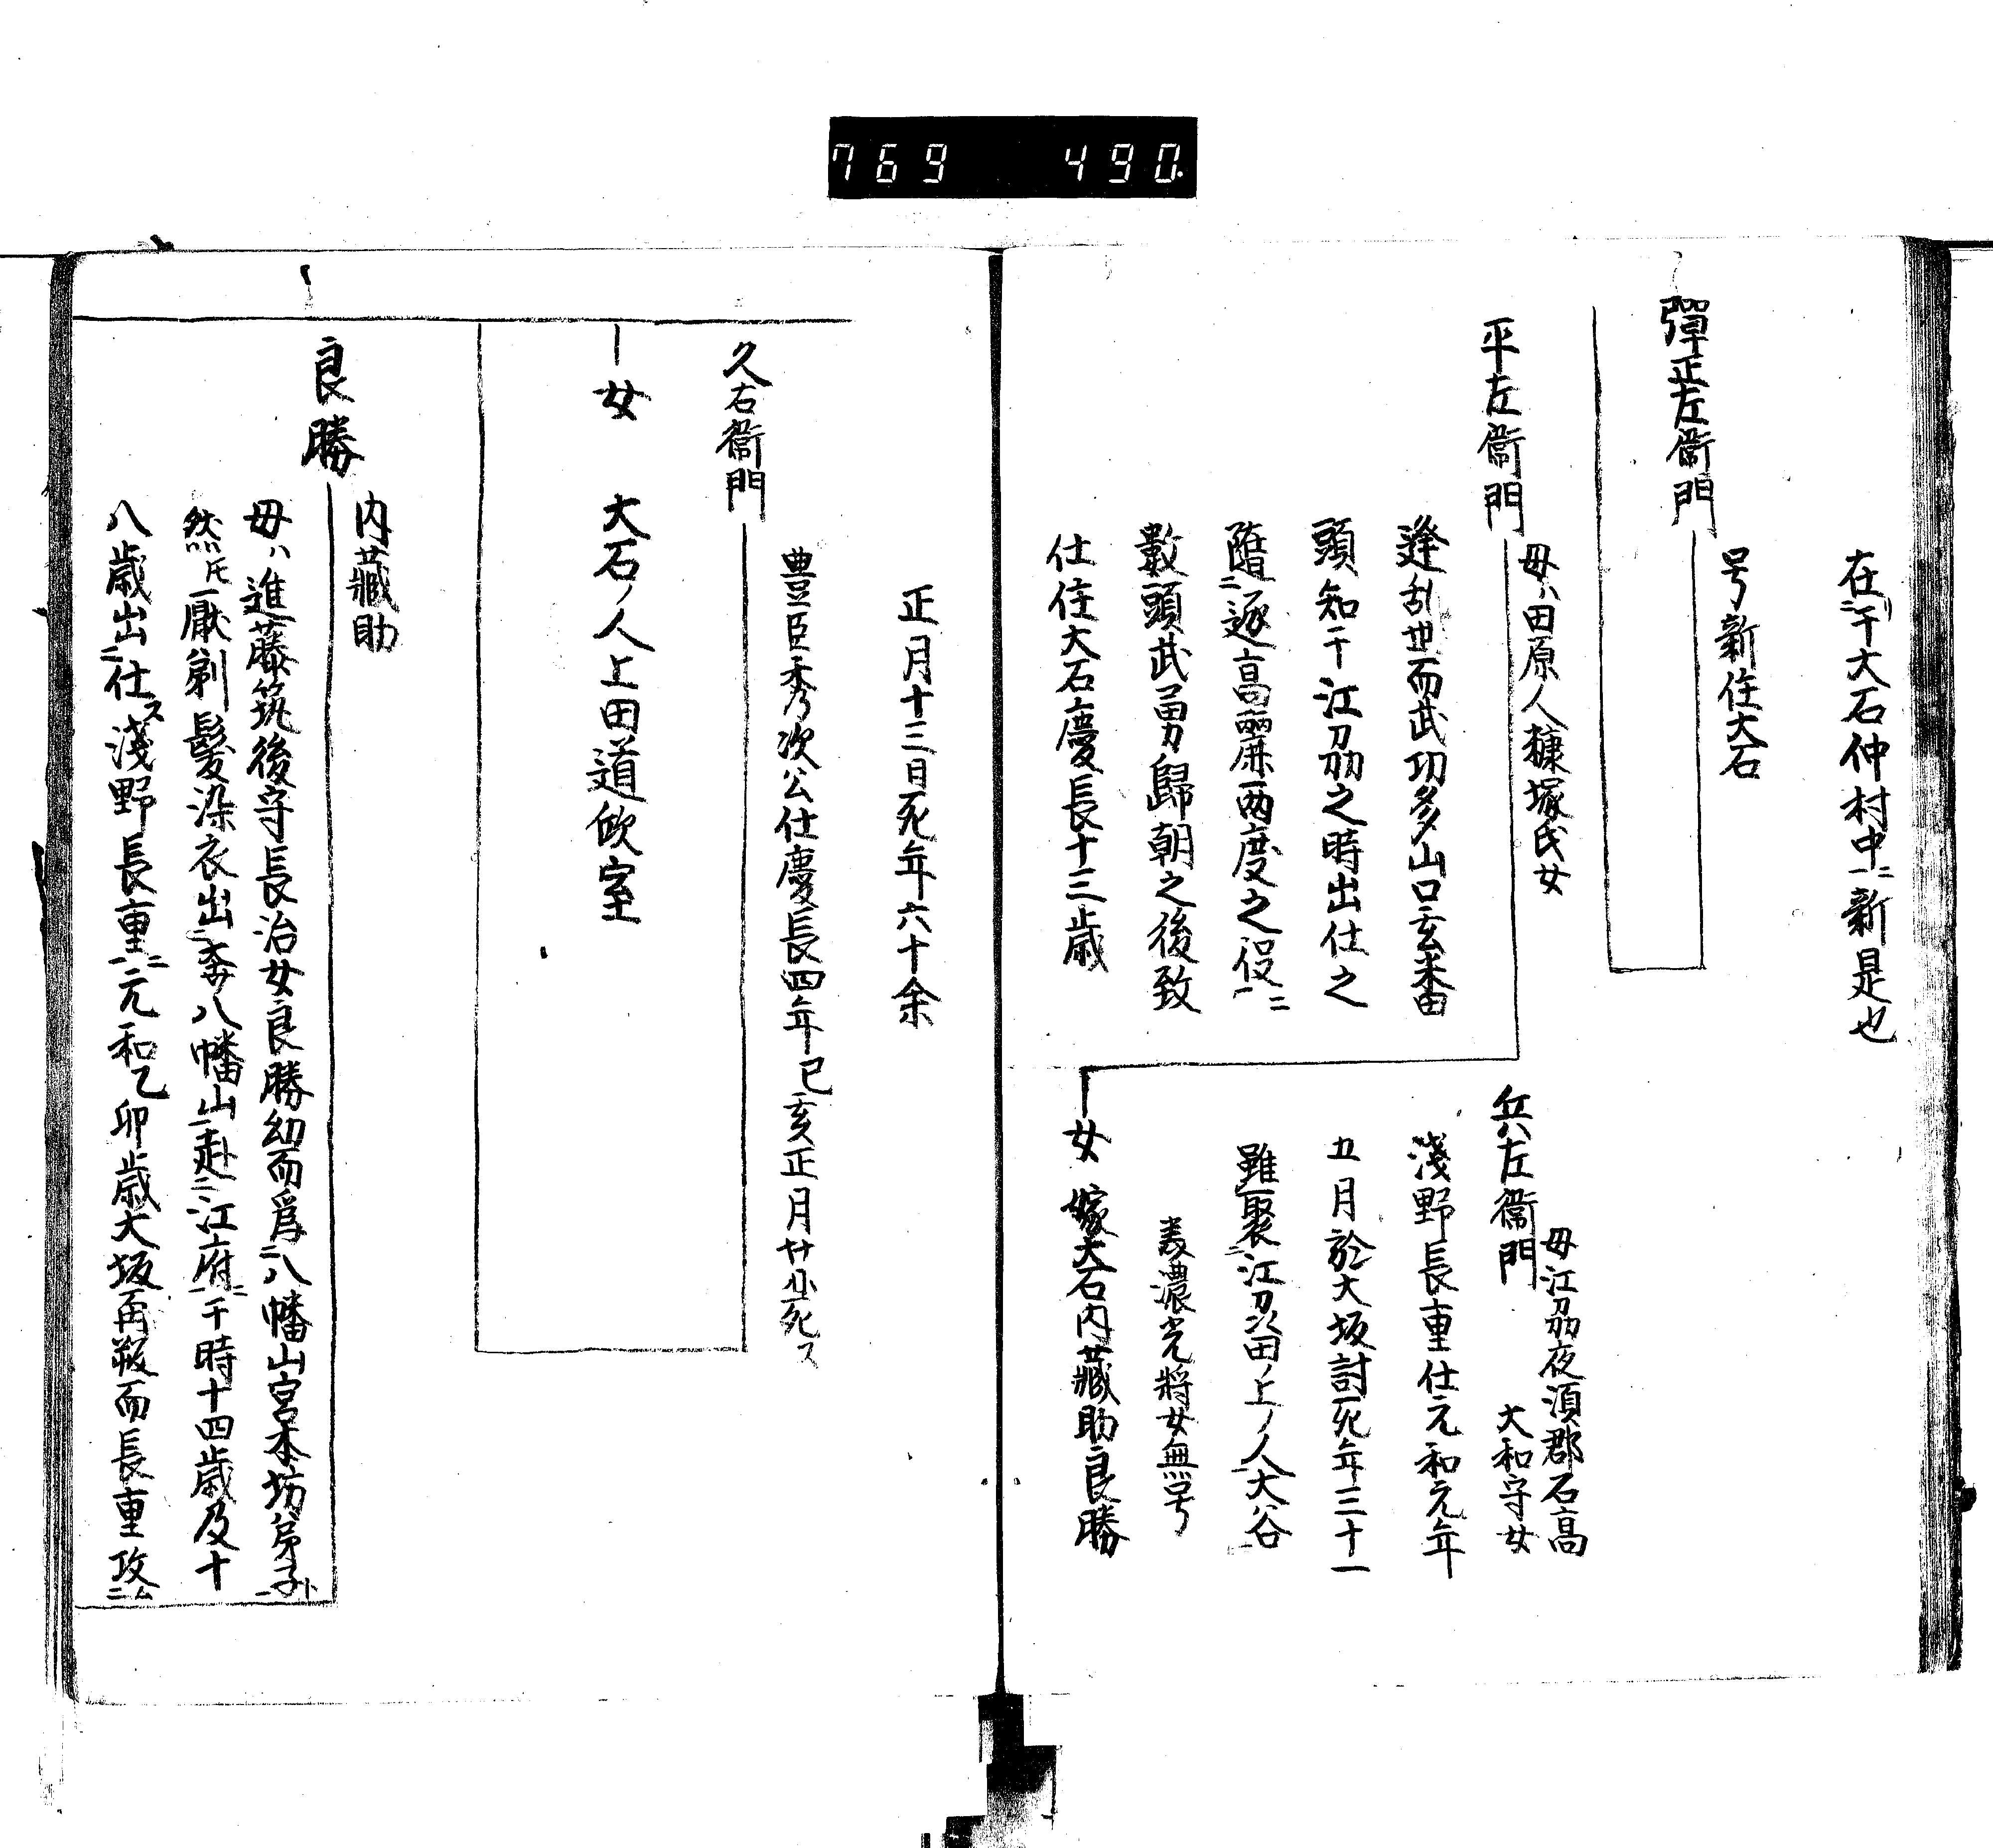 769 490.
在二于大石仲村中一ニ新是也
彈正左衞門
号新住大石
平左衞門
母ハ田原人糠塚氏女
逢乱世而武功多山口玄番
頭知于江刕之時出仕之
隨二逐高麗兩度之役一ニ
數頭武勇歸朝之後致
仕住大石慶長十三歳
兵左衞門
母江刕夜須郡石高
大和守女
淺野長重仕元和元年
五月於大坂討死年三十一
雖聚二江刕田ノ上ノ人大谷
美濃光將女無号
女 嫁大石内藏助良勝
正月十三日死年六十余
久右衞門
豊臣秀次公仕慶長四年己亥正月廿死ス
女 大石ノ人上田道欣室
良勝
内藏助
母ハ進藤筑後守長治女良勝幼而爲二八幡山宮本坊弟子一ト
然厭剃髮染衣出二奔八幡山一赴二江府一ニ于時十四歳及十
八歳出二仕ス淺野長重一ニ元和乙卯歳大坂再𢧐而長重攻二ム